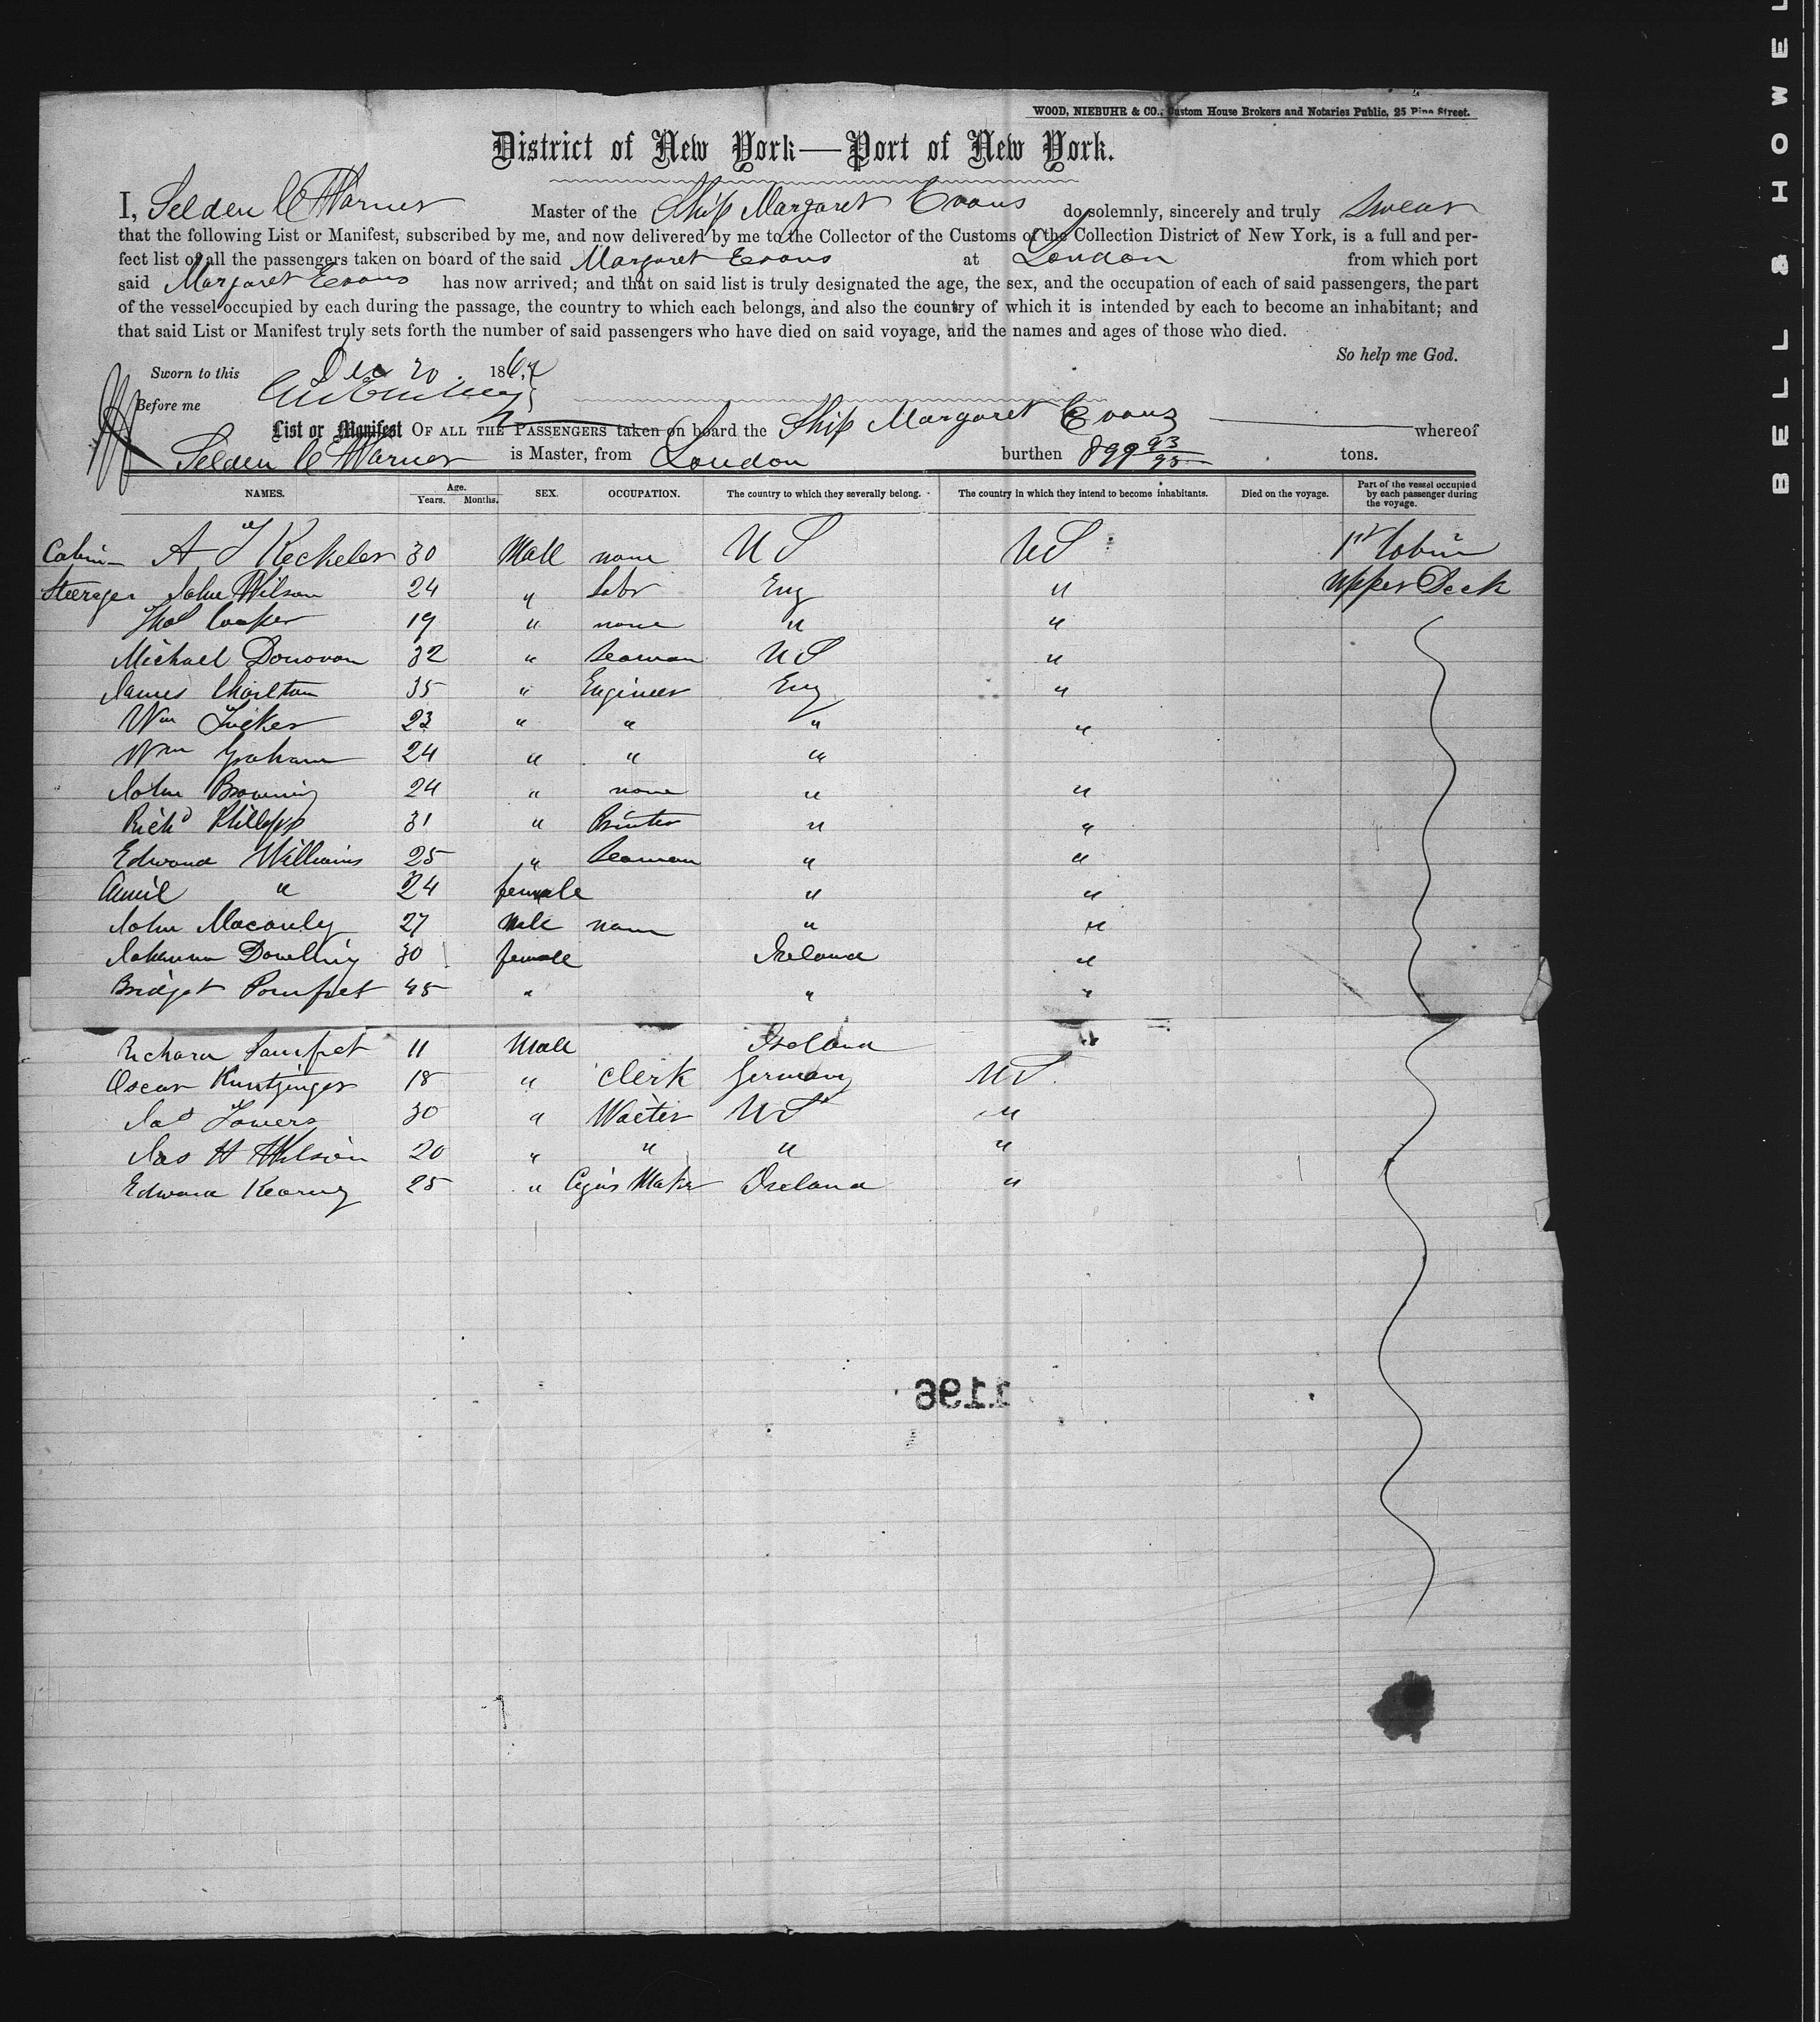 WOOD, NIEBUHR & CO., Custom House Brokers and Notaries Public, 25 Pine Street.
District of New York—Port of New York.
I, Selden C Warner Master of the Ship Margaret Evans do solemnly, sincerely and truly Swear
that the following List or Manifest, subscribed by me, and now delivered by me to the Collector of the Customs of the Collection District of New York, is a full and per-
fect list of all the passengers taken on board of the said Margaret Evans at London from which port
said Margaret Evans has now arrived; and that on said list is truly designated the age, the sex, and the occupation of each of said passengers, the part
of the vessel occupied by each during the passage, the country to which each belongs, and also the country of which it is intended by each to become an inhabitant; and
that said List or Manifest truly sets forth the number of said passengers who have died on said voyage, and the names and ages of those who died.
So help me God.
Sworn to this Dec 20 186
Before me
List or Manifest OF ALL THE PASSENGERS taken on board the Ship Margaret Evans whereof
Selden C Warner is Master, from London burthen 899 93/95 tons.
NAMES. Age. Years. Months. SEX. OCCUPATION. The country to which they severally belong. The country in which they intend to become inhabitants. Died on the voyage. Part of the vessel occupied by each passenger during the voyage.
Cabin A T Keckeler 30 Male none U S U S 1st Cabin
Steerage John Wilson 24 " Labr Eng " Upper Deck
Thos Cooper 19 " none " "
Michael Donovan 32 " Seaman U S "
James Charlton 35 " Engineer Eng "
Wm Tucker 23 " " " "
Wm Graham 24 " " "
John Browning 24 " none " "
Richd Phillipps 31 " Printer " "
Edward Williams 25 " Seaman " "
Annie " 24 female " "
John Macauly 27 Male none " "
Johanna Dowling 30 female Ireland "
Bridget Pomfret 45 " " "
Richard Pomfret 11 Male Ireland "
Oscar Kuntzinger 18 " Clerk Germany U S.
Jas Towers 30 " Waiter U S "
Jas H Wilson 20 " " " "
Edward Kearny 25 " Cigar Maker Ireland "
1196
BELL & HOWEL